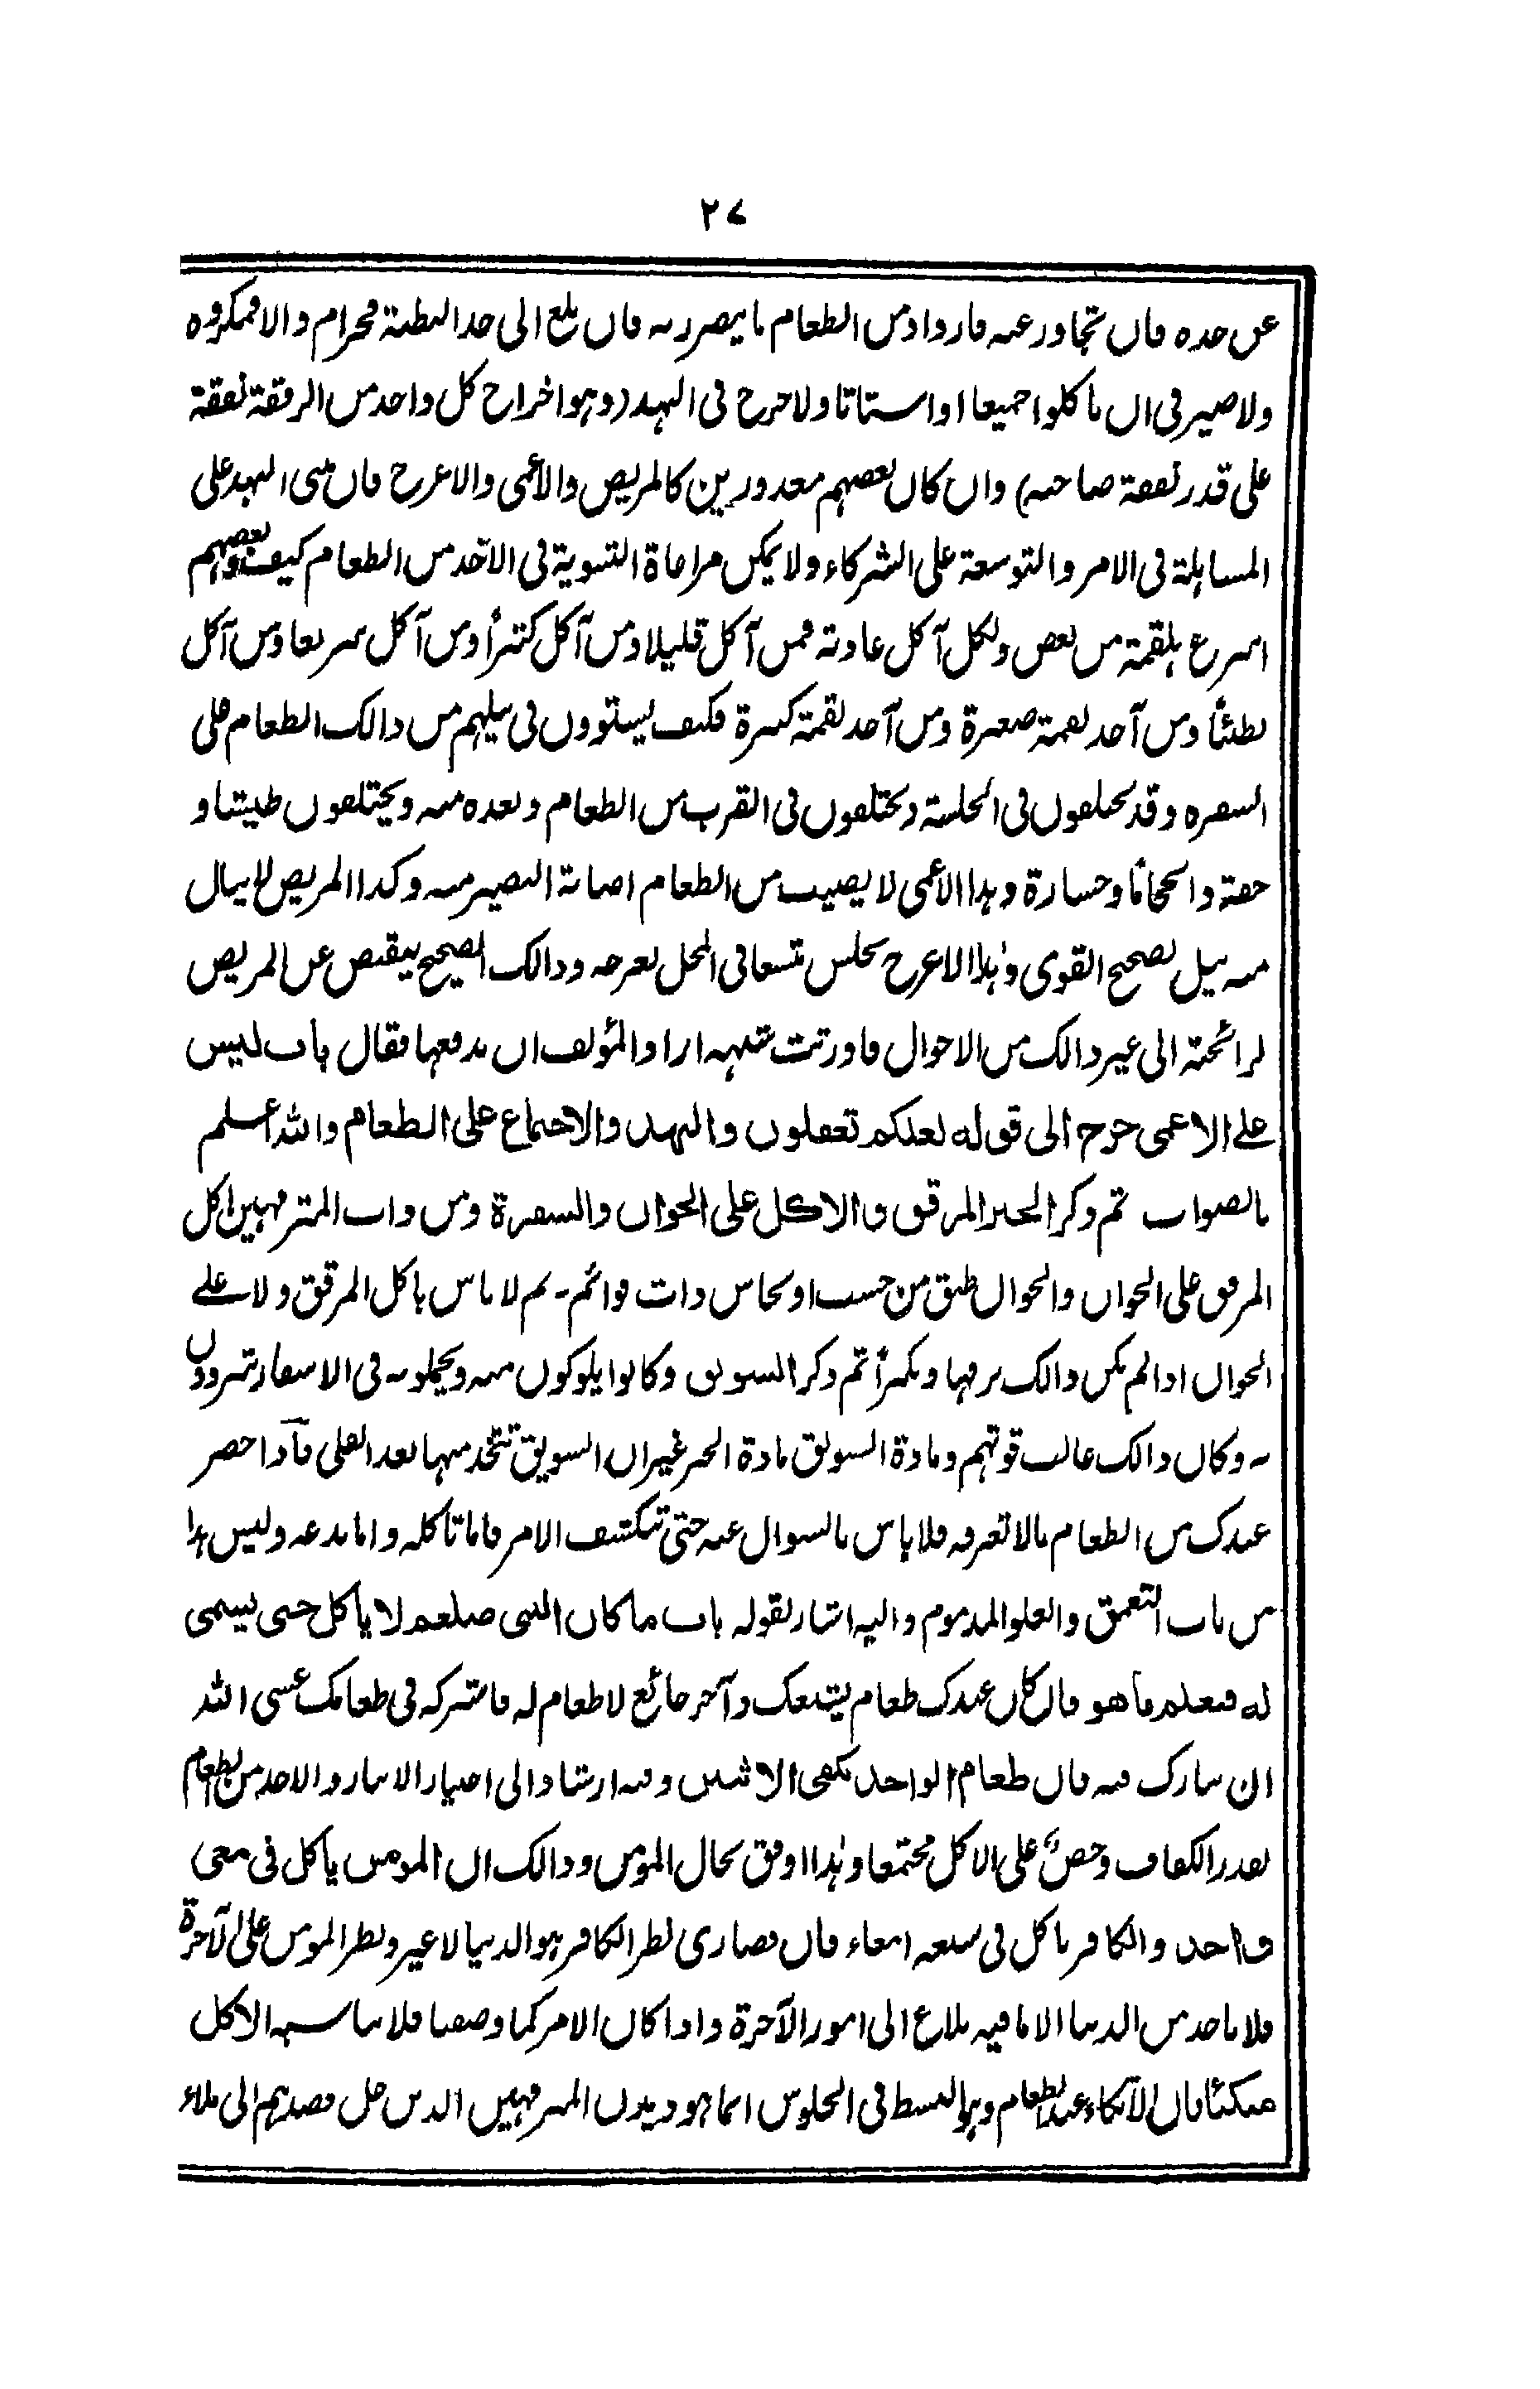 ٢٧
عن حده فان تجاوز عنه فازداد من الطعام ما يضر به فان بلغ الى حد البطنة فحرام والا فمكروه
ولا ضير فى ان ياكلوا جميعا او اشتاتا ولا حرج فى النهد (وهو اخراج كل واحد من الرفقة نفقة
على قدر نفقة صاحبه) وان كان بعضهم معذورين كالمريض والاعمى والاعرج فان مبنى النهد على
المساهلة فى الامر والتوسعة على الشركاء ولا يمكن مراعاة التسوية فى الاخذ من الطعام كيف وبعضهم
اسرع بلقمة من بعض ولكل آكل عادته فمن آكل قليلا ومن آكل كثيراً ومن آكل سريعا ومن آكل
بطيئاً ومن آخذ لقمة صغيرة ومن آخذ لقمة كبيرة فكيف يستوون فى نيلهم من ذالك الطعام على
السفره وقد يختلفون فى الجلسة ويختلفون فى القرب من الطعام وبعده منه ويختلفون طيشا و
خفة و وجسارة وهذا الاعمى لا يصيب من الطعام اصابة البصير منه وكذا المريض لا ينال
منه نيل لصحيح القوى وهذا الاعرج يجلس متسعا فى المحل لعرجه وذالك الصحيح ينقبض عن المريض
لرائحته الى غير ذالك من الاحوال فاورثت شبهه اراد المؤلف ان يدفعها فقال باب ليس
على الاعمى حرج الى قوله لعلكم تعقلون والنهد والاجتماع على الطعام والله اعلم
بالصواب ثم ذكر الخبز المرقق والاكل على الخوان والسفرة ومن داب المترفهين اكل
المرقق على الخوان والخوان طبق من خشب او نحاس ذات قوائم - نعم لا باس باكل المرقق ولا على
الخوان اذا لم يكن ذالك ترفها وتكبراً ثم ذكر السويق وكانوا يلوكون منه ويحملونه فى الاسفار يتزودون
به وكان ذالك غالب قوتهم ومادة السويق مادة الخبز غير ان السويق تتخذ منها بعد القلى فآذا حضر
عندك من الطعام ما لا تعرفه فلا باس بالسوال عنه حتى تنكشف الامر فاما تاكله واما تدعه وليس هذا
من باب التعمق والغلو المذموم واليه اشار لقوله باب ما كان النبى صلعم لا ياكل حتى يسمى
له فيعلم ما هو فان كان عندك طعام يشبعك وآخر جائع لا طعام له فاشركه فى طعامك عسى الله
ان يبارك فيه فان طعام الواحد يكفى الاثنين وفيه ارشاد الى اختيار الايثار والاخذ من الطعام
بقدر الكفاف وحضٌّ على الاكل مجتمعا وهذا اوفق بحال المؤمن وذالك ان المومن ياكل فى معى
واحد والكافر ياكل فى سبعه امعاء فان قصارى نظر الكافر هو الدنيا لا غير ونظر المومن على الآخرة
فلا ياخذ من الدنيا الا ما فيه بلاغ الى امور الآخرة واذا كان الامر كما وصفنا فلا يناسبه الاكل
متكئا فان الاتكاء عند الطعام وهو التبسط فى الجلوس انما هو ديدن المترفهين الذين جل قصدهم الى ملاء